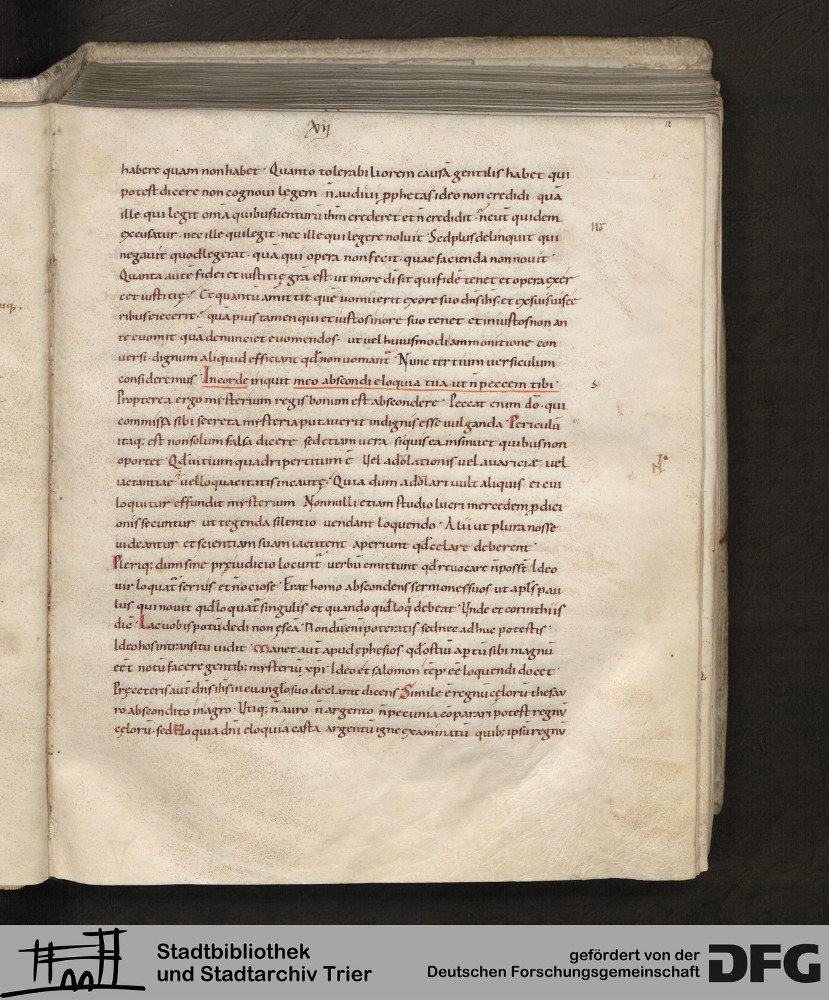 xvij
12
habere quam non habet · Quanto tolerabiliorem causā gentilis habet qui
potest dicere non cognovi legem n̄ audivi p̱phetas ideo non credidi quā
ille qui legit om̄a quibus venturū ihm̄ crederet et n̄ credidit
excusatur · nec ille qui legit · nec ille qui legere noluit · Sed plus delinquit qui
negavit quod legerat · quā qui opera non fecit · quae facienda non novit ·
Quanta autē fidei et iustitię gr̄a est · ut in ore dī sit qui fidē tenet et opera exer
cet iustitię · Et quantū amittit quē vomuerit ex ore suo dn̄s ihs̄ · et ex suis visce
ribus eiecerit · quāpuis tamen qui et iustos in ore suo tenet et iniustos non an
te evomit quā denunciet evomendos · ut vel huiusmodi ammonitione con
versi · dignum aliquid efficiant qd̄ non vomant᷑ · Nunc tertium versiculum
consideremus · In corde inquit meo abscondi eloquia tua ut n̄ peccem tibi ·
Propterea ergo mysterium regis bonum est abscondere · Peccat enim dō · qui
commissa sibi secreta mysteria putaverit indignis esse vulganda · Periculū
itaq; est non solum falsa dicere sed etiam vera si quis ea insinuet quibus non
oportet · Qd̄ vitium quadripertitum ē · Vel adōlationis vel avariciae vel
iactantiae vel loquacitatis incautę · Quia dum adōlari vult aliquis ei cui
loquitur effundit mysterium · Nonnulli etiam studio lucri mercedem p̱ dici
onis secuntur ut tegenda silentio vendant loquendo · Alii ut plura nosse
videantur et scientiam suam iactitent aperiunt qd̄ celare deberent ·
Pleriq; dum sine pręiudicio locunt᷑ verbū emittunt qd̄ revocare n̄ posst̄ · Ideo
vir loquat᷑ serius et n̄ ociose · Erat homo abscondens sermones suos ut apls̄ pau
lus qui novit quid loquat᷑ singulis et quando quid loq᷑ debeat · Unde et corinthiis
dic̄ · Lac vobis potū dedi non escā · Nondū eni poteratis sed nec adhuc potestis ·
Ideo hos in transitu vidit · Manet aut̄ apud ephesios · qd̄ ostiū aptū sibi magnū
eēt notū facere gentib; mysteriū xp̄i · Ideo et salomon tēp᷑ eē loquendi docet ·
Pręceteris aut̄ dn̄s ihs̄ in evanglo suo declarat dicens · Simile ē regnū cęlorū thesav
ro abscondito in agro · Utiq; n̄ auro n̄ argento n̄ pecunia cōparari potest regnū
cęlorū · sed Eloquia dn̄i eloquia casta argentū igne examinatū quib; ipsū regnū
Stadtbibliothek
und Stadtarchiv Trier
gefördert von der
Deutschen Forschungsgemeinschaft
DFG